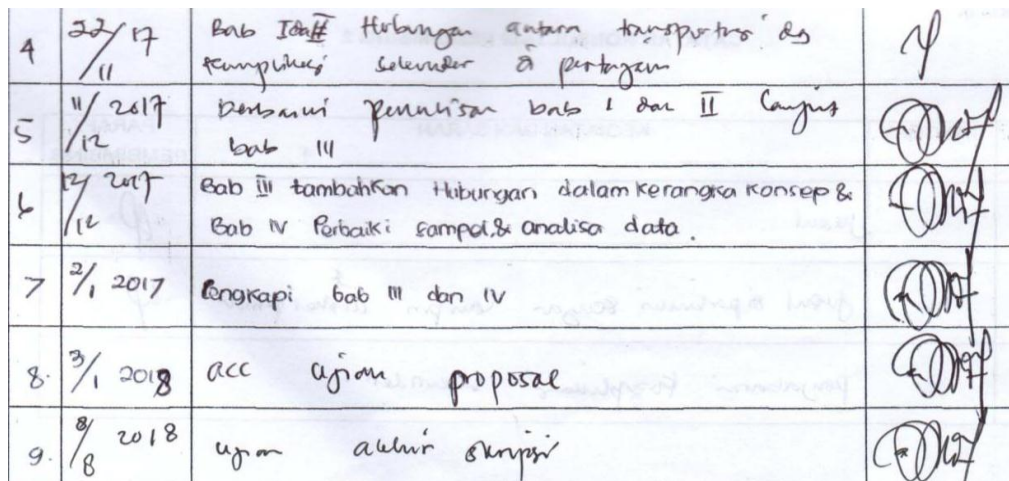 4 22/11 17 Bab I dan II Hubungan antara transportasi dg
komplikasi sekunder di pertajam
5 11/12 2017 Perbaiki penulisan bab I dan II lanjut
bab III
6 12/12 2017 Bab III tambahkan Hubungan dalam kerangka konsep &
Bab IV Perbaiki sampel & analisa data.
7 2/1 2017 Lengkapi bab III dan IV
8. 3/1 2018 acc ujian proposal
9. 8/8 2018 ujian akhir skripsi